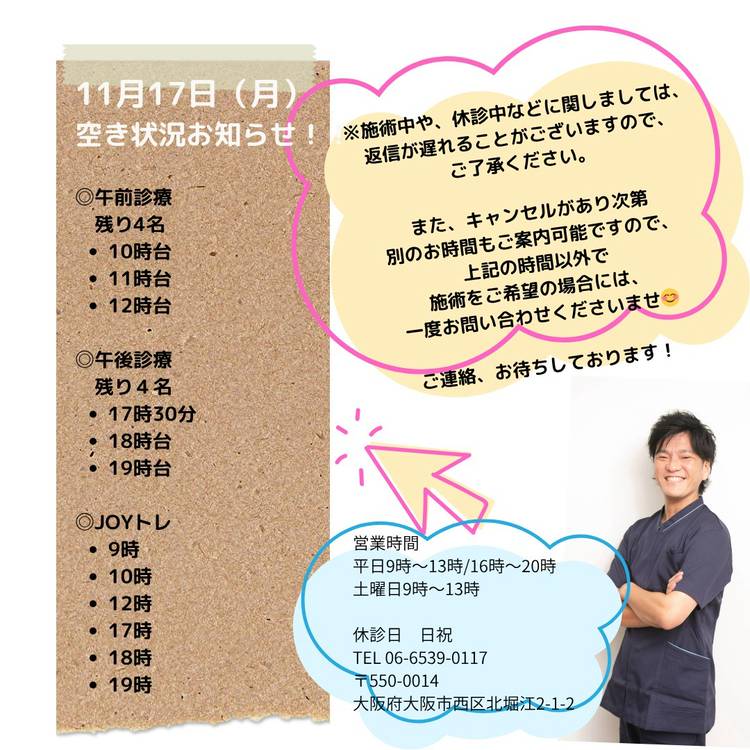 11月17日（月）
空き状況お知らせ！
◎午前診療
残り4名
• 10時台
• 11時台
• 12時台
◎午後診療
残り４名
• 17時30分
• 18時台
• 19時台
◎JOYトレ
• 9時
• 10時
• 12時
• 17時
• 18時
• 19時
※施術中や、休診中などに関しましては、
返信が遅れることがございますので、
ご了承ください。
また、キャンセルがあり次第
別のお時間もご案内可能ですので、
上記の時間以外で
施術をご希望の場合には、
一度お問い合わせくださいませ😊
ご連絡、お待ちしております！
営業時間
平日9時～13時/16時～20時
土曜日9時～13時
休診日　日祝
TEL 06-6539-0117
〒550-0014
大阪府大阪市西区北堀江2-1-2